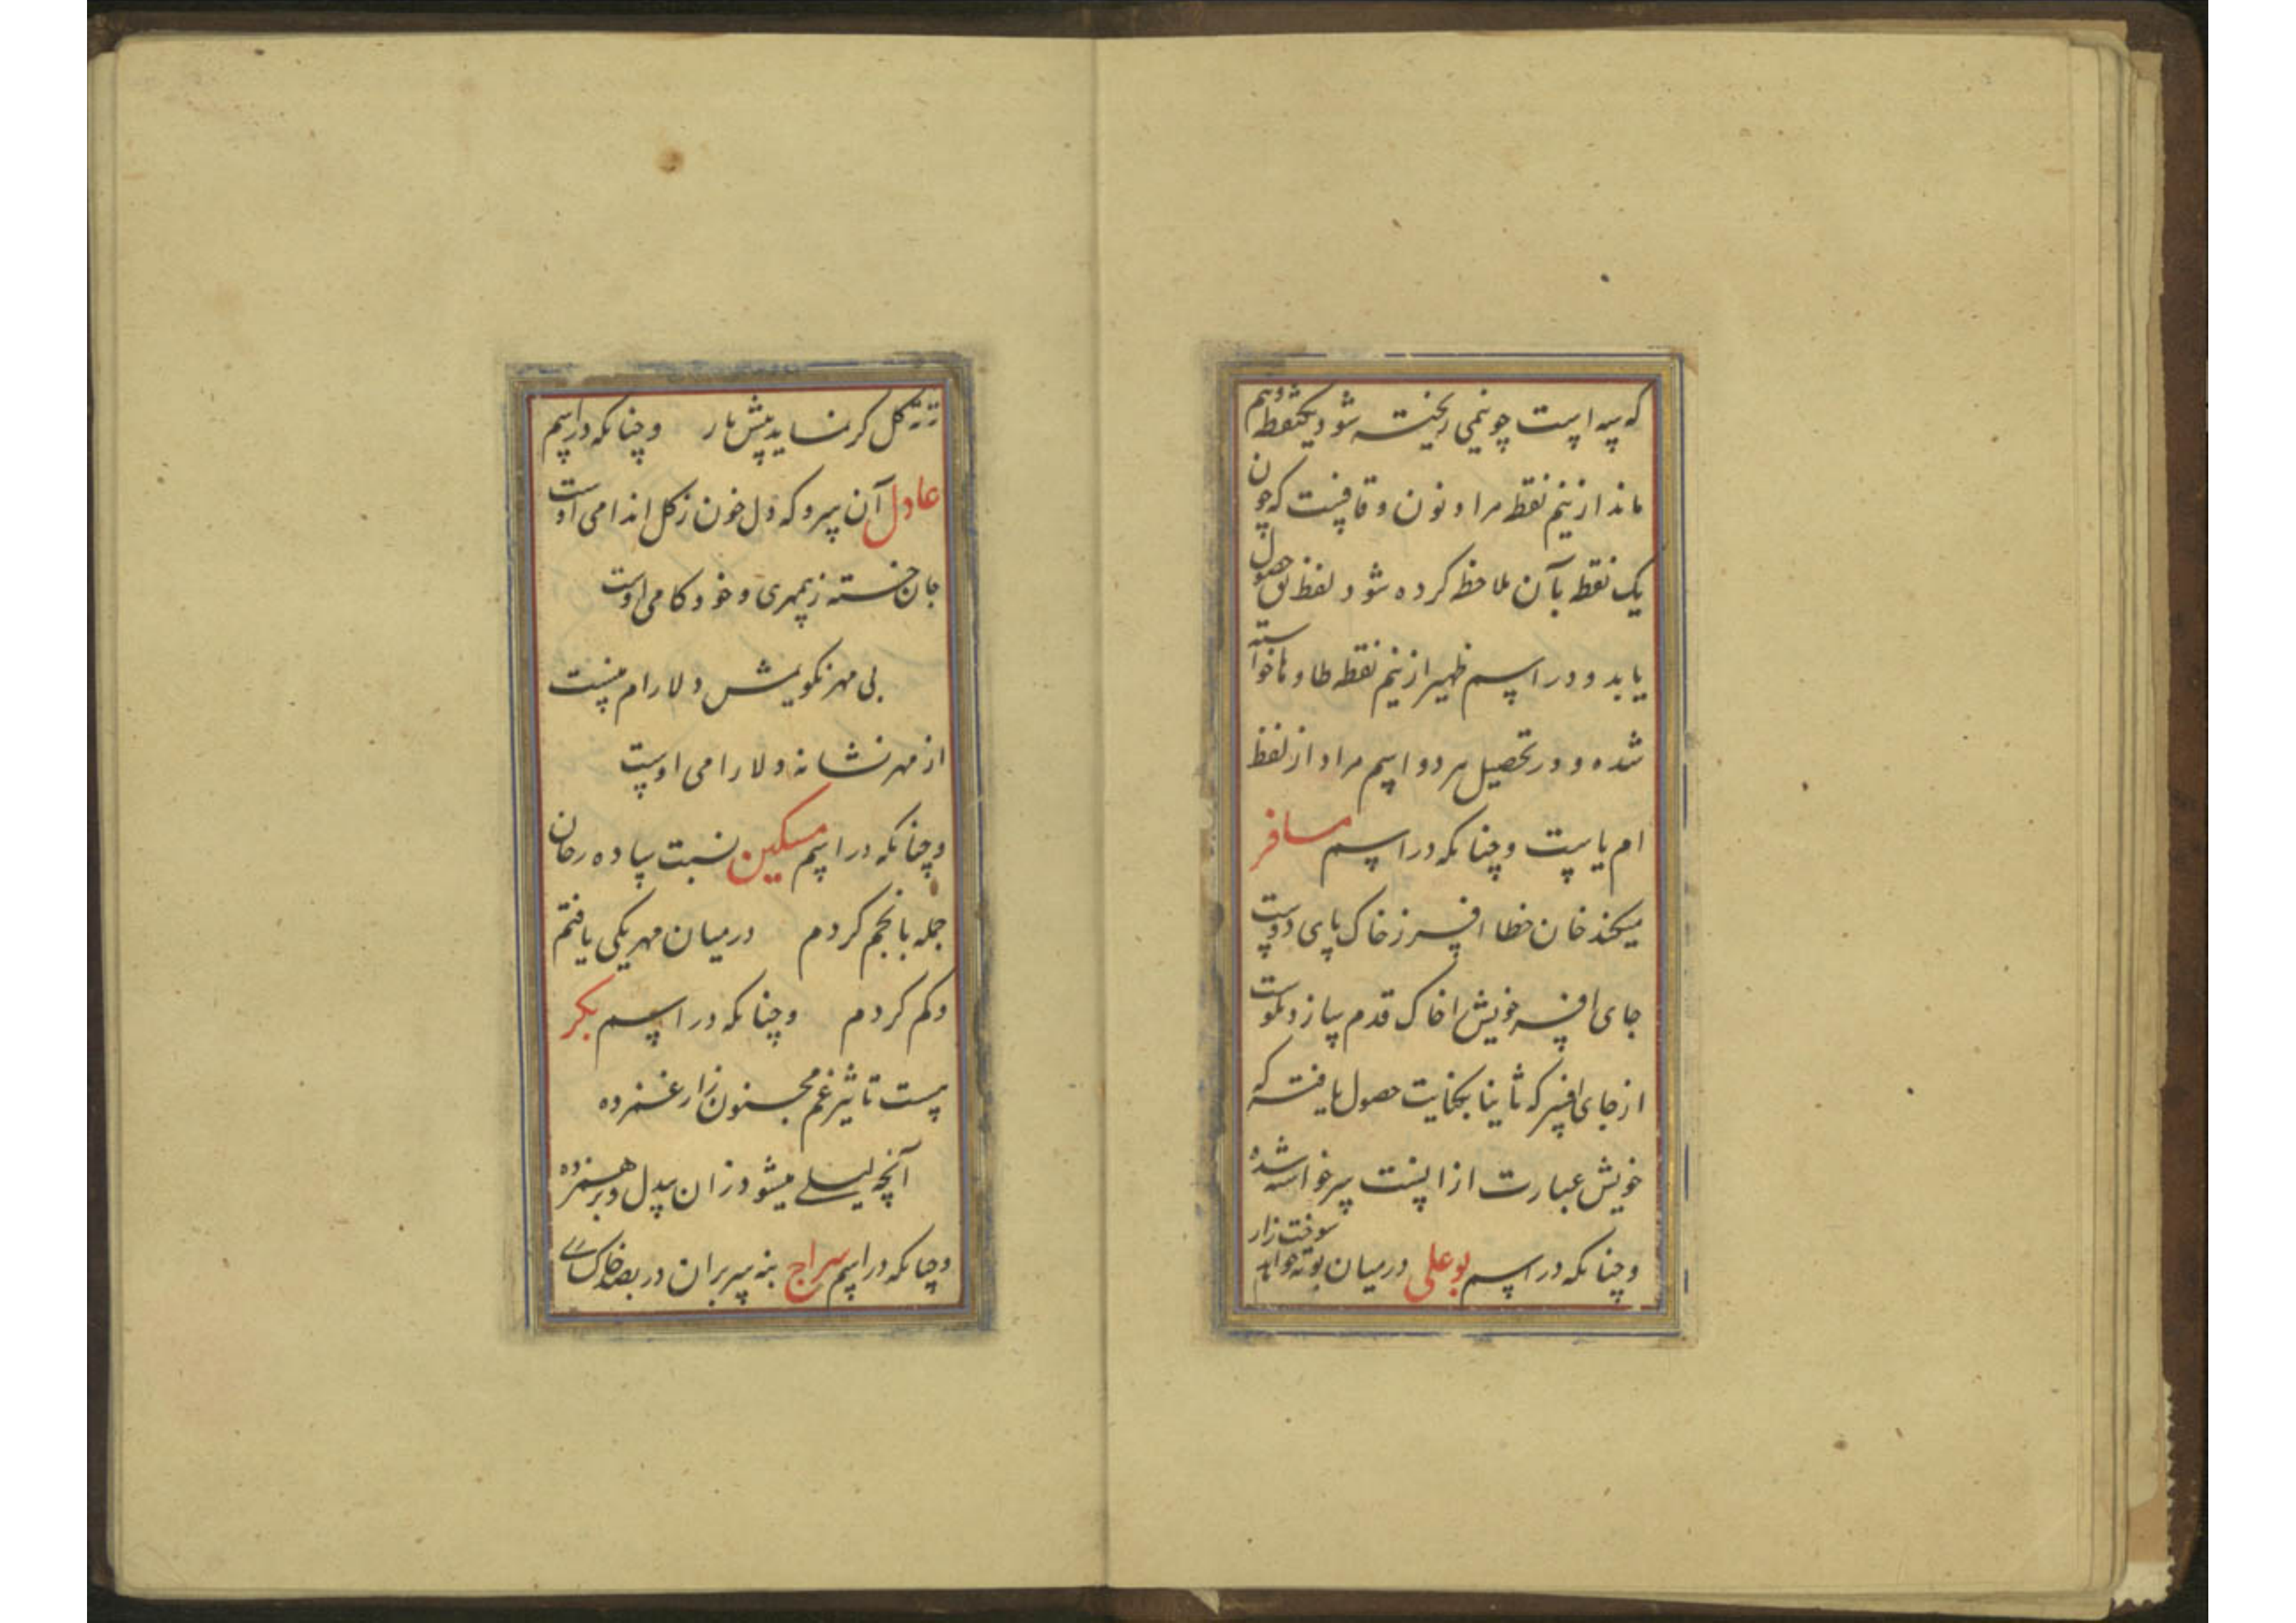 که سه است چو نیمی ریخته شود یکنقطه و نیم
ماند از نیم نقطه مراد نون و قافست که چون
یک نقطه بآن ملاحظه کرده شود لفظ بق حصول
یابد و در اسم ظهیر از نیم نقطه طا و ها خواسته
شده و در تحصیل هر دو اسم مراد از لفظ
ام یا ست و چنانکه در اسم مسافر
میکند خان خطا افسر ز خاک پای دوست
جای افسر خویش را خاک قدم سازد نکوست
از جای افسر که ثانیا بکنایت حصول یافته که
خویش عبارت از انست سر خواسته شده
و چنانکه در اسم بوعلی در میان بوته خواهد سوخت زار
زر که گل کر نماید پیش یار و چنانکه در اسم
عادل آن سرو که دل خون ز گل اندامی اوست
جان خسته ز بیمهری و خودکامی اوست
بی مهر نگویمش دلارام نیست
از مهر نشانه دلارامی اوست
و چنانکه در اسم مسکین نسبت ساده رخان
جمله بانجم کردم در میان مهر یکی یافتم
و کم کردم و چنانکه در اسم بکر
هست تاثیر غم مجنون زار غمزده
آنچه لیلی میشود زان بیدل و برهمزده
و چنانکه در اسم سراج بنه سر بران در بصد خاکساری